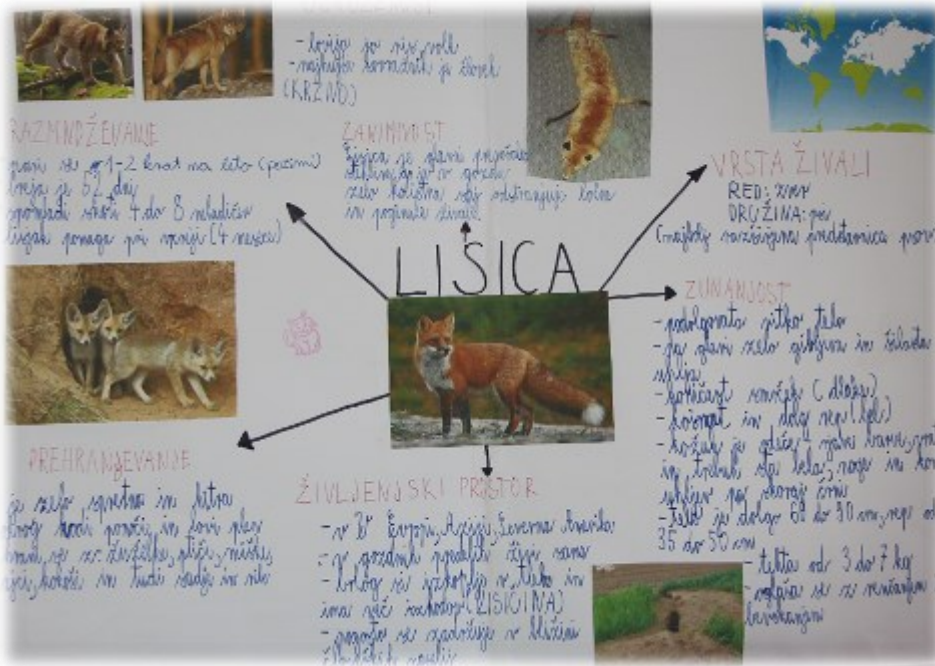 - lovijo jo ris, volk
- najhujši sovražnik je človek
(KRZNO)
RAZMNOŽEVANJE
se 1-2 krat na leto (pozimi)
je 52 dni
spomladi skoti 4 do 8 mladičev
lisjak pomaga pri vzreji (4 mesece)
ZANIMIVOST
lisica je glavni
stekline, je v gozdu
zelo koristna saj odstranjuje bolne
in poginule živali
VRSTA ŽIVALI
RED: zveri
DRUŽINA: psi
(najbolj razširjena predstavnica
LISICA
ZUNANJOST
- podolgovato vitko telo
- na glavi zelo gibljiva in
- koničast smrček (dlake)
- košat in dolg rep (bel)
- kožuh je rdeče rjave barve,
in trebuh sta bela, noge in
skoraj črni
- telo je dolgo 60 do 90 cm, rep od
35 do 50 cm
- tehta od 3 do 7 kg
- oglaša se z renčanjem
bevskanjem
PREHRANJEVANJE
je zelo spretna in hitra
hodi ponoči in lovi plen
hrani se z: žuželke, ptiči, miške,
kokoši in tudi sadje in ribe
ŽIVLJENJSKI PROSTOR
- v Evropi, Aziji, Severna Amerika
- v gozdu živi sama
- brlog si izkoplje v tleh in
ima več izhodov (LISIČINA)
- pogosto se zadržuje v bližini